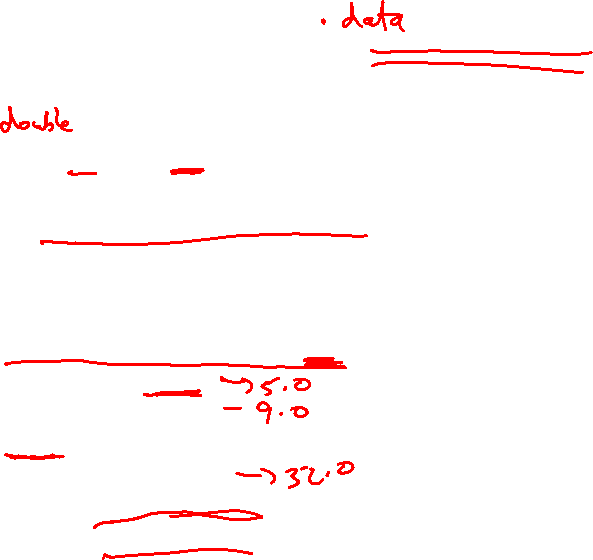 . data
double
→ 5.0
- 9.0
→ 32.0